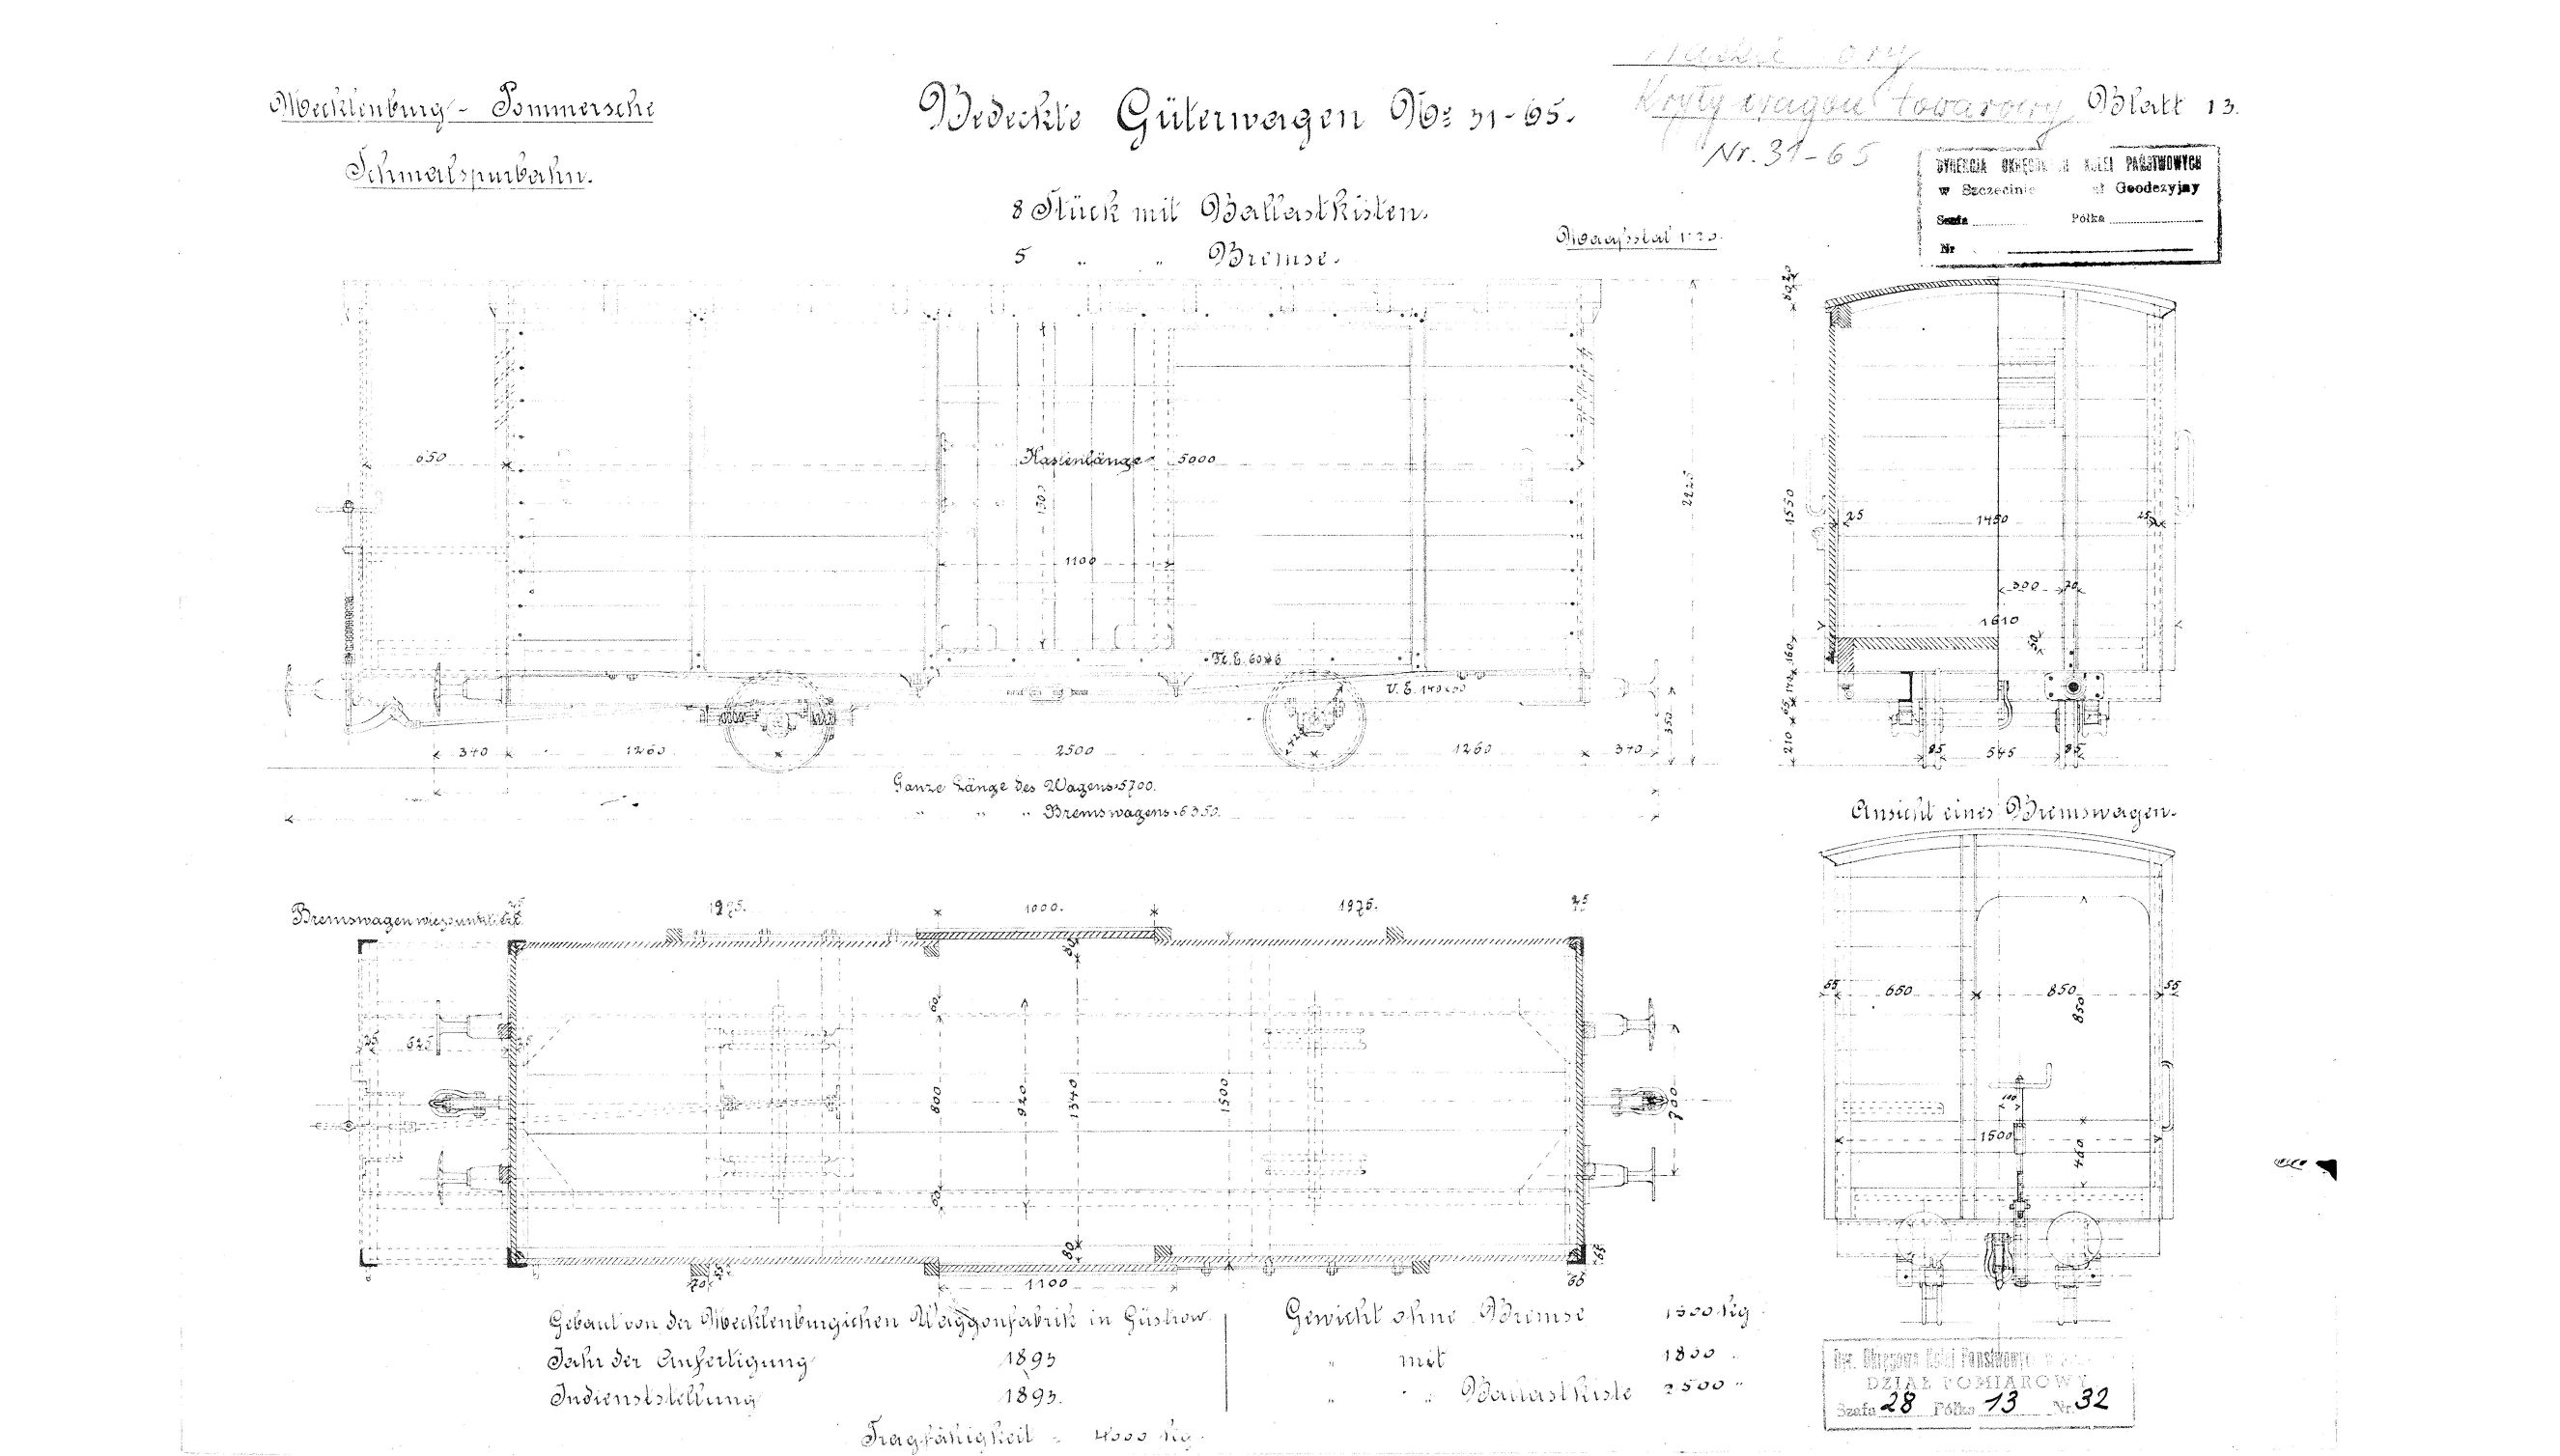 Mecklenburg - Pommersche
Schmalspurbahn.
Bedeckte Güterwagen No 31-65.
8 Stück mit Ballastkisten.
5 " " Bremse.
Maafsstab 1:20.
Kryty wagon towarowy
Nr. 31-65
Blatt 13.
DYREKCJA OKRĘGOWA KOLEI PAŃSTWOWYCH
w Szczecinie Geodezyjny
Szafa Półka
Nr
650
Kastenlänge 5000
1100
2225
Fl. E. 60x6
U. E. 140x60
340 1260 2500 1260 340
350
Ganze Länge des Wagens=5700.
" " " Bremswagens=6350.
1550
25 1450 25
300 70
1610
50
160
210
85 545 85
Ansicht eines Bremswagen.
55 650 850 55
850
1500
460
Bremswagen wie punktirt.
25 1975. 1000. 1975. 25
625
80
60
800 920 1340 1500
700
60
80
70
1100
65
65
Gebaut von der Mecklenburgischen Waggonfabrik in Güstrow.
Jahr der Anfertigung 1893
Indienststellung 1893.
Gewicht ohne Bremse 1500 Kg
" mit " 1800 "
" " Ballastkiste 2500 "
Tragfähigkeit = 4000 Kg.
Okręgowa Kolei Państwowych
DZIAŁ POMIAROWY
Szafa 28 Półka 13 Nr. 32